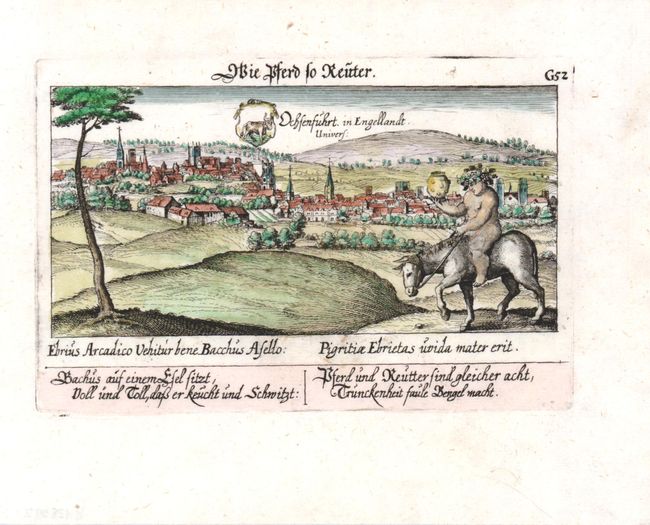 Wie Pferd so Reüter.
G52
Ochsenführt. in Engellandt.
Univers:
Ebrius Arcadico Vehitur bene Bacchus Asello:
Pigritiæ Ebrietas uvida mater erit.
Bachus auf einem Esel sitzt,
Voll und Toll, daß er keucht und Schwitzt:
Pferd und Reütter sind gleicher acht,
Trunckenheit faule Bengel macht.